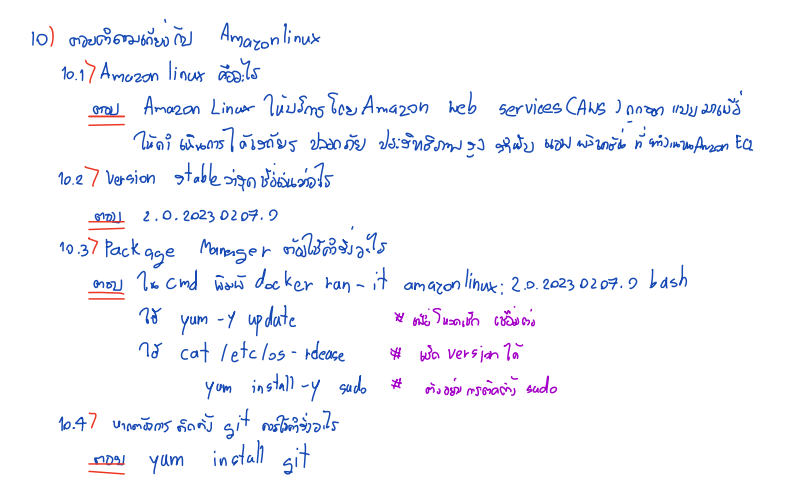 10) ตอบคำถามเกี่ยวกับ Amazonlinux
10.1) Amazon linux คืออะไร
ตอบ Amazon Linux ให้บริการโดย Amazon web services (AWS) ถูกออกแบบมาเพื่อ
ให้ดำเนินการได้เสถียร ปลอดภัย ประสิทธิภาพสูง สำหรับ แอปพลิเคชั่น ที่ทำงานบน Amazon EC2
10.2) Version stable ล่าสุด ชื่อเวอร์ชันอะไร
ตอบ 2.0.20230207.0
10.3) Package Manager ต้องใช้คำสั่งอะไร
ตอบ ใน cmd พิมพ์ docker run -it amazonlinux:2.0.20230207.0 bash
ใช้ yum -y update # เพื่อ
ใช้ cat /etc/os-release # เช็ค version ได้
yum install -y sudo # ตัวอย่างการติดตั้ง sudo
10.4) หากต้องการติดตั้ง git ควรใช้คำสั่งอะไร
ตอบ yum install git